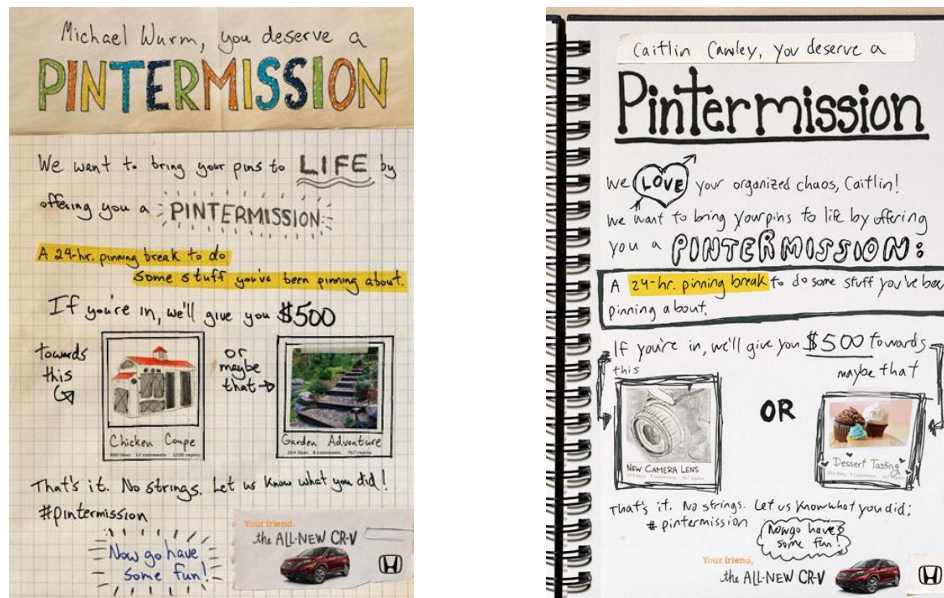 Michael Wurm, you deserve a
PINTERMISSION
We want to bring your pins to LIFE by
offering you a PINTERMISSION:
A 24-hr. pinning break to do
some stuff you've been pinning about.
If you're in, we'll give you $500
towards
this
or
maybe
that
Chicken Coupe
Garden Adventure
That's it. No strings. Let us know what you did!
#pintermission
Now go have
some fun!
Your friend,
the ALL-NEW CR-V
Caitlin Cawley, you deserve a
Pintermission
We LOVE your organized chaos, Caitlin!
We want to bring your pins to life by offering
you a PINTERMISSION:
A 24-hr. pinning break to do some stuff you've bee
pinning about.
If you're in, we'll give you $500 towards
this
maybe that
OR
NEW CAMERA LENS
Dessert Tasting
That's it. No strings. Let us know what you did:
#pintermission
Now go have
some fun!
Your friend,
the ALL-NEW CR-V